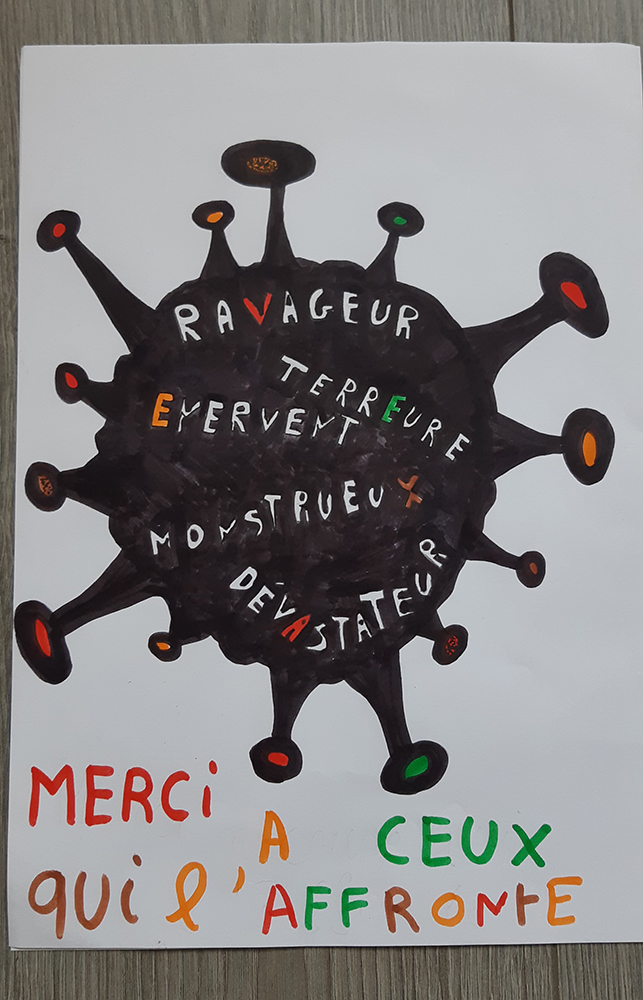 RAVAGEUR
TERREURE
EMERVENT
MONSTRUEUX
DÉVASTATEUR
MERCi
A CEUX
qui l'AFFRONTE